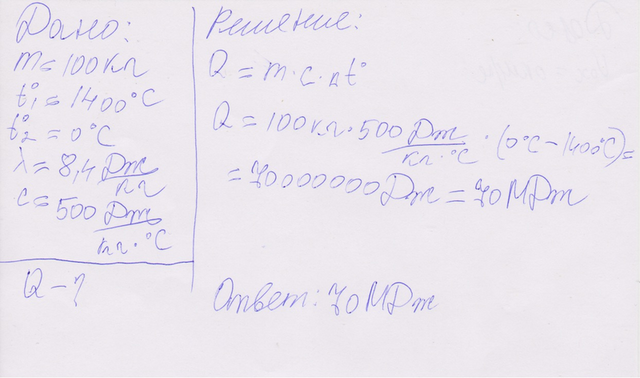 Дано:
m = 100 кг
t°1 = 1400°C
t°2 = 0°C
λ = 8,4 Дж/кг
c = 500 Дж/кг·°C
Q - ?
Решение:
Q = m·c·Δt°
Q = 100 кг · 500 Дж/кг·°C · (0°C - 1400°C) =
= 70000000 Дж = 70 МДж
Ответ: 70 МДж